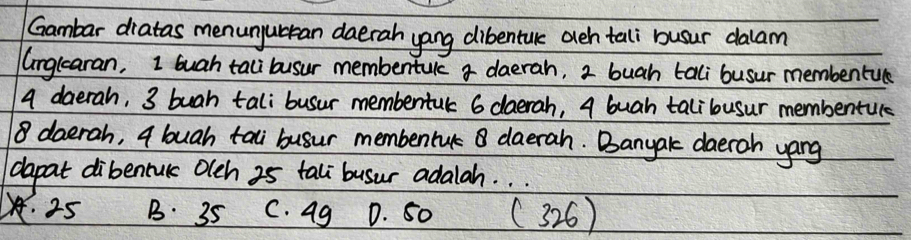 Gambar diatas menunjukkan daerah yang dibentuk oleh tali busur dalam
lingkaran, 1 buah tali busur membentuk 2 daerah, 2 buah tali busur membentuk
4 daerah, 3 buah tali busur membentuk 6 daerah, 4 buah tali busur membentuk
8 daerah, 4 buah tali busur membentuk 8 daerah. Banyak daerah yang
dapat dibentuk Oleh 25 tali busur adalah...
A. 25 B. 35 C. 49 D. 50 (326)